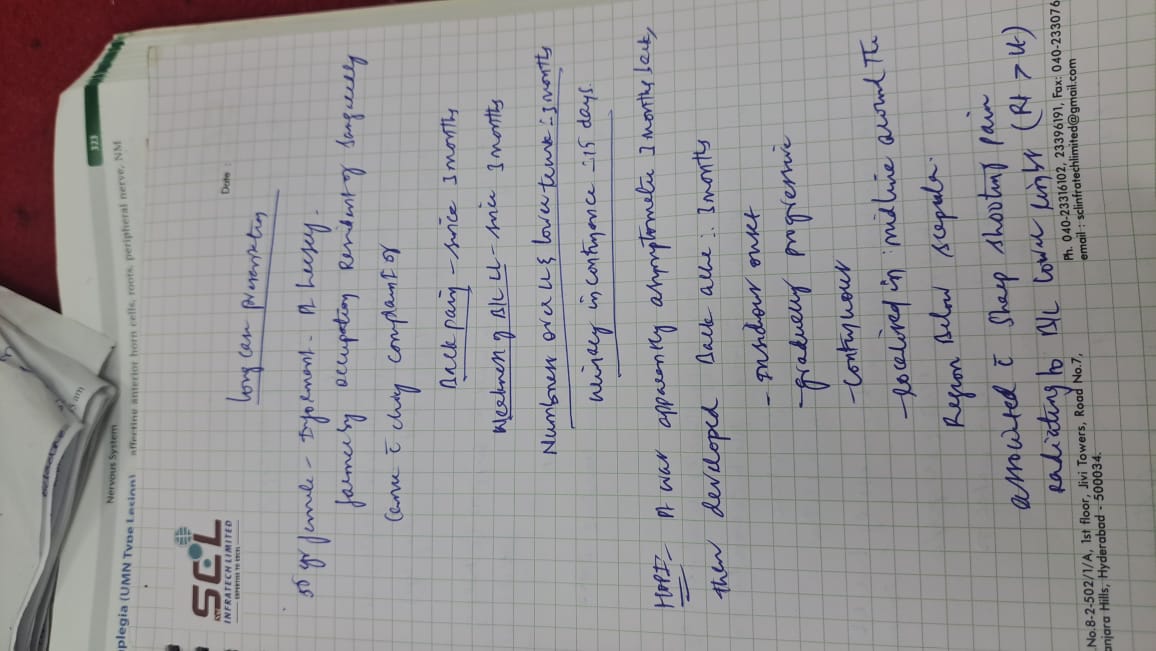 323
Nervous System
plegia (UMN Type Lesion) affecting anterior horn cells, roots, peripheral nerve, NM
SCL
INFRATECH LIMITED
Date :
Long case presentation
55 yr female -
farmer by occupation Resident of
Came c̄ chief complaint of
Back pain - since 3 months
Weakness of B/L LL - since 3 months
Numbness over all lower trunk : 3 months
urinary incontinence - 15 days.
HOPI - Pt was apparently asymptomatic 3 months back,
then developed Back ache : 3 months
- insidious onset
- gradually progressive
- continuous
- localised in : midline around the
Region Below scapula.
associated c̄ Sharp shooting pain
radiating to B/L lower
No.8-2-502/1/A, 1st floor, Jivi Towers, Road No.7,
anjara Hills, Hyderabad - 500034.
Ph. 040-23316102, 23396191, Fax: 040-233076
email : sclinfratechlimited@gmail.com